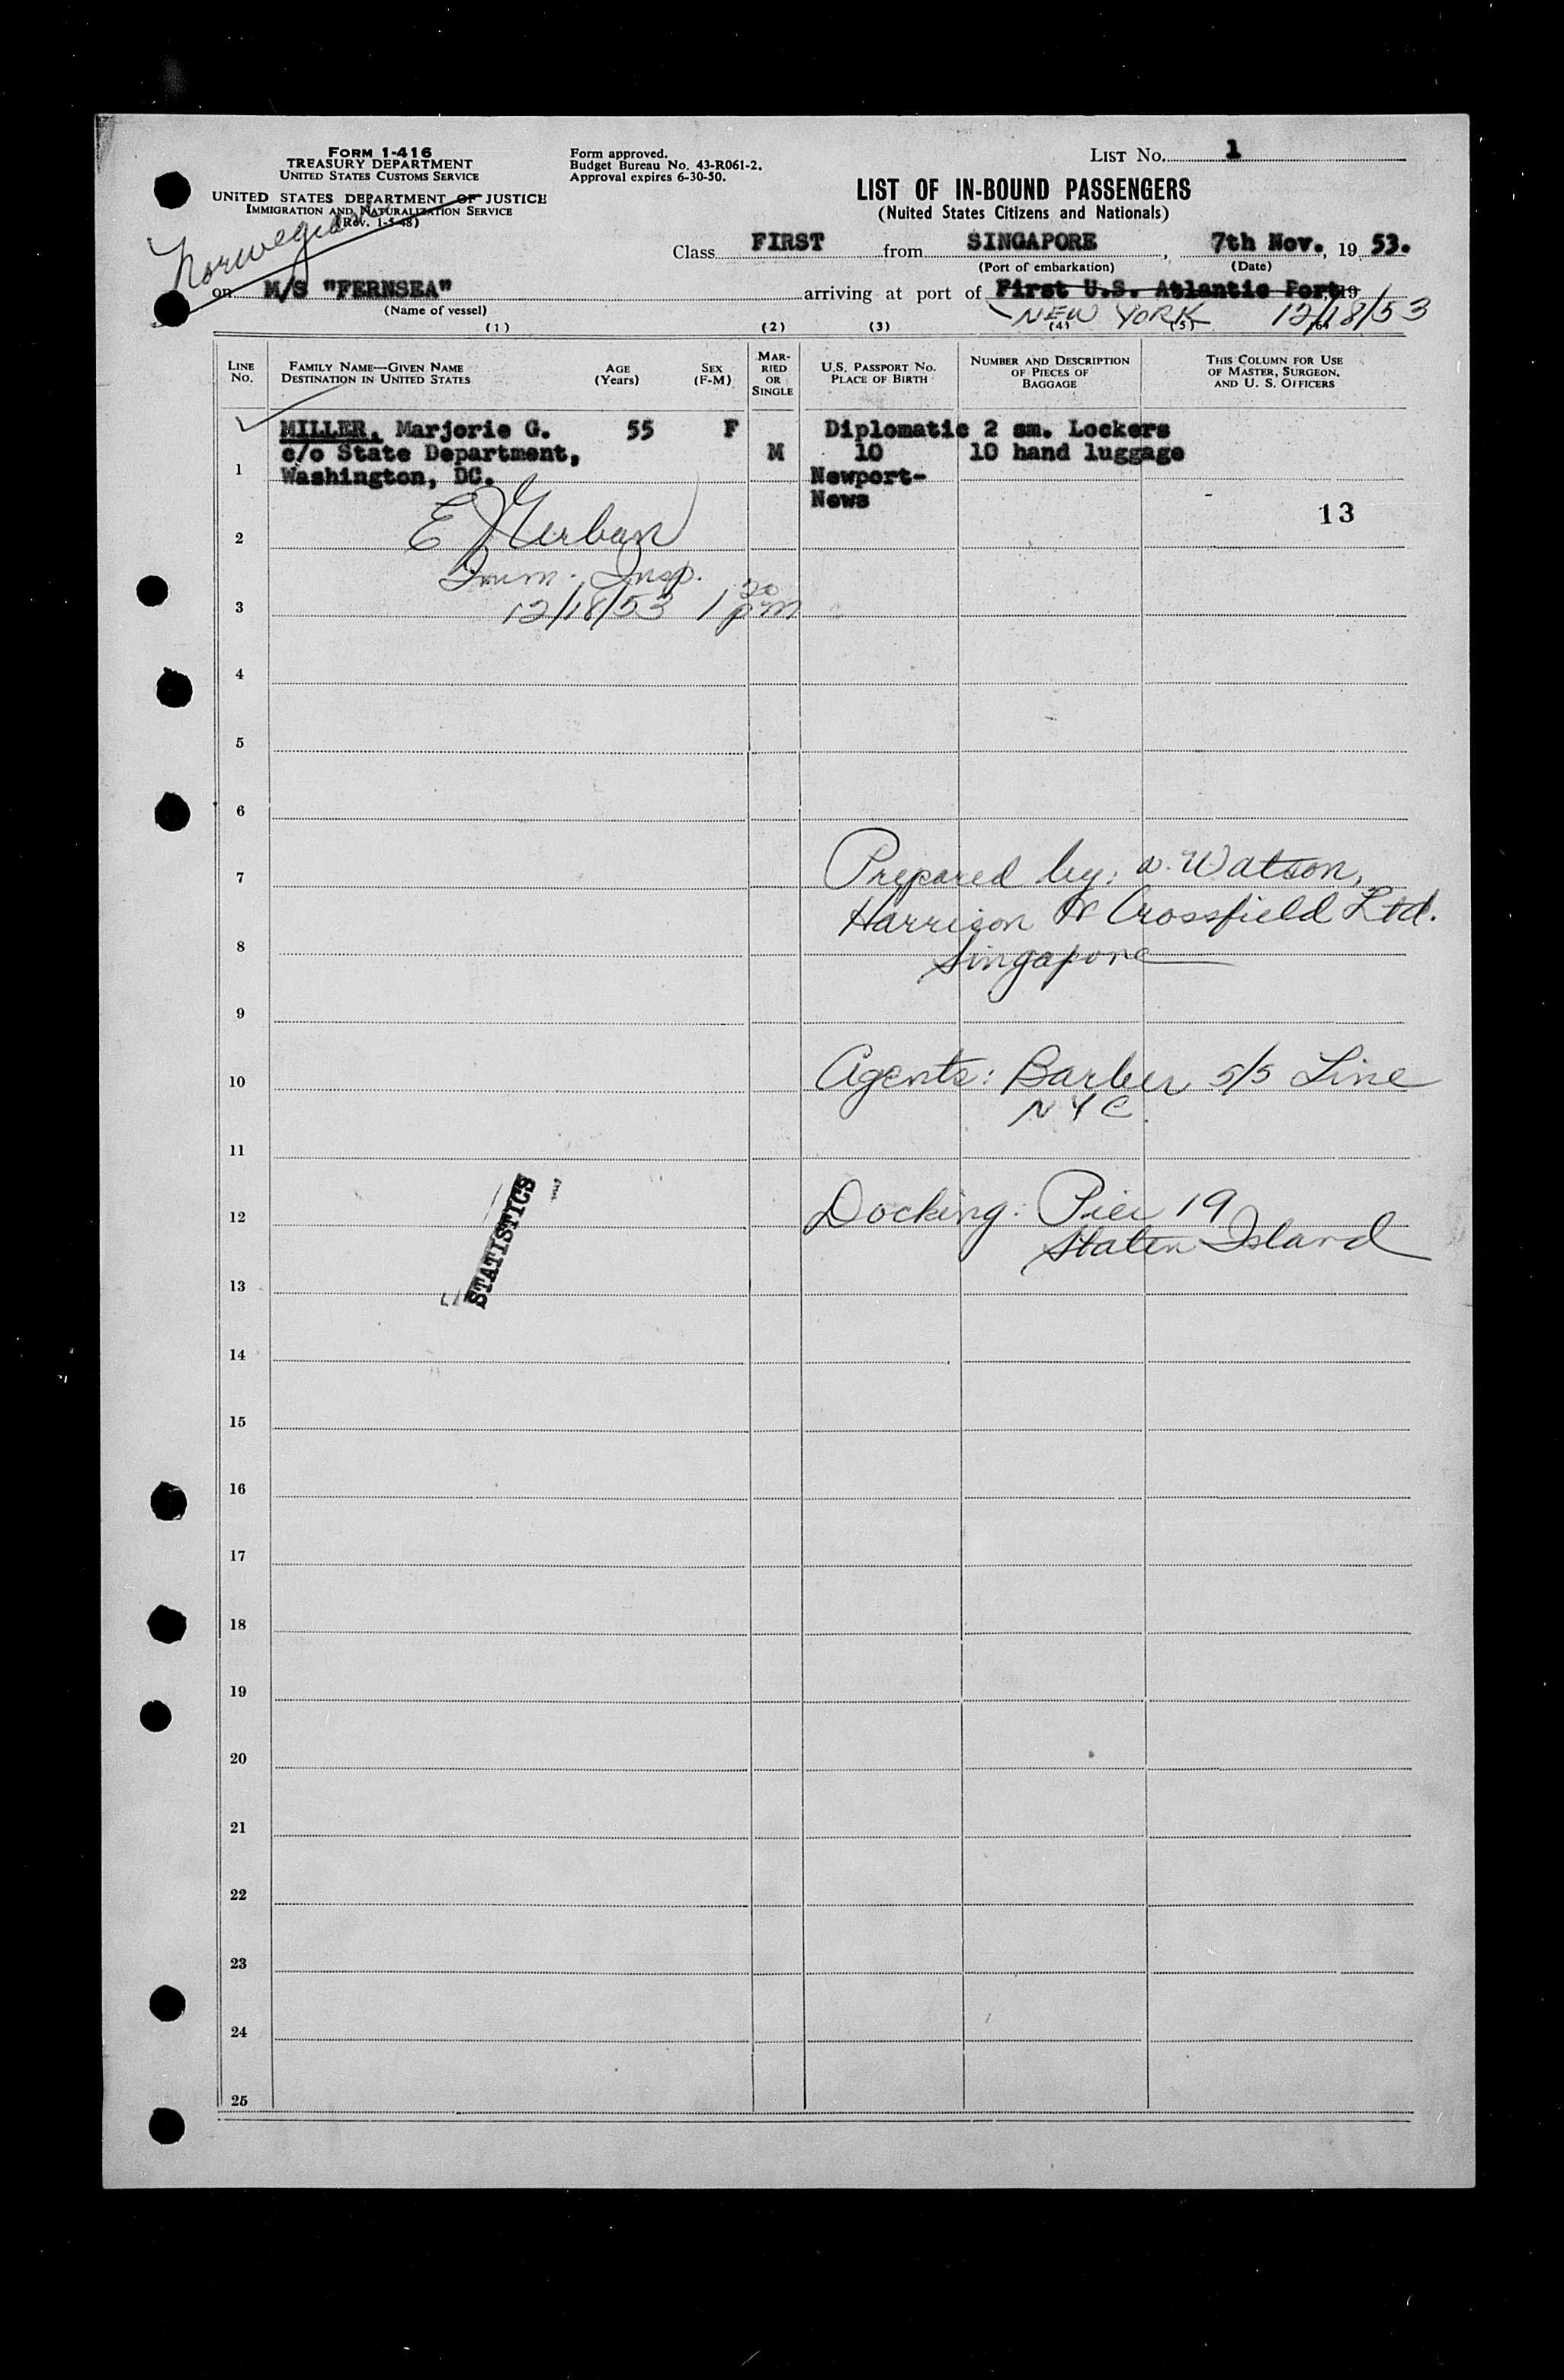 FORM 1-416
TREASURY DEPARTMENT
UNITED STATES CUSTOMS SERVICE
UNITED STATES DEPARTMENT OF JUSTICE
IMMIGRATION AND NATURALIZATION SERVICE
(Rev. 1-5-48)
Form approved.
Budget Bureau No. 43-R061-2.
Approval expires 6-30-50.
LIST No. 1
LIST OF IN-BOUND PASSENGERS
(Nuited States Citizens and Nationals)
Norwegian
Class FIRST from SINGAPORE, 7th Nov., 19 53.
(Port of embarkation) (Date)
on M/S "FERNSEA" arriving at port of First U.S. Atlantic Port, 19
(Name of vessel) NEW YORK 12/18/53
(1) (2) (3) (4) (5) (6)
LINE No. FAMILY NAME—GIVEN NAME DESTINATION IN UNITED STATES AGE (Years) SEX (F-M) MARRIED OR SINGLE U.S. PASSPORT No. PLACE OF BIRTH NUMBER AND DESCRIPTION OF PIECES OF BAGGAGE THIS COLUMN FOR USE OF MASTER, SURGEON, AND U. S. OFFICERS
MILLER, Marjorie G. 55 F Diplomatic 2 sm. Lockers
c/o State Department, M 10 10 hand luggage
1 Washington, DC. Newport-
News
13
2
Imm. Insp.
3 12/18/53 1 20 pm
4
5
6
7 Prepared by: W. Watson,
Harrison & Crossfield Ltd.
8 Singapore
9
10 Agents: Barber S/S Line
NYC
11
12 Docking: Pier 19
Staten Island
STATISTICS
13
14
15
16
17
18
19
20
21
22
23
24
25